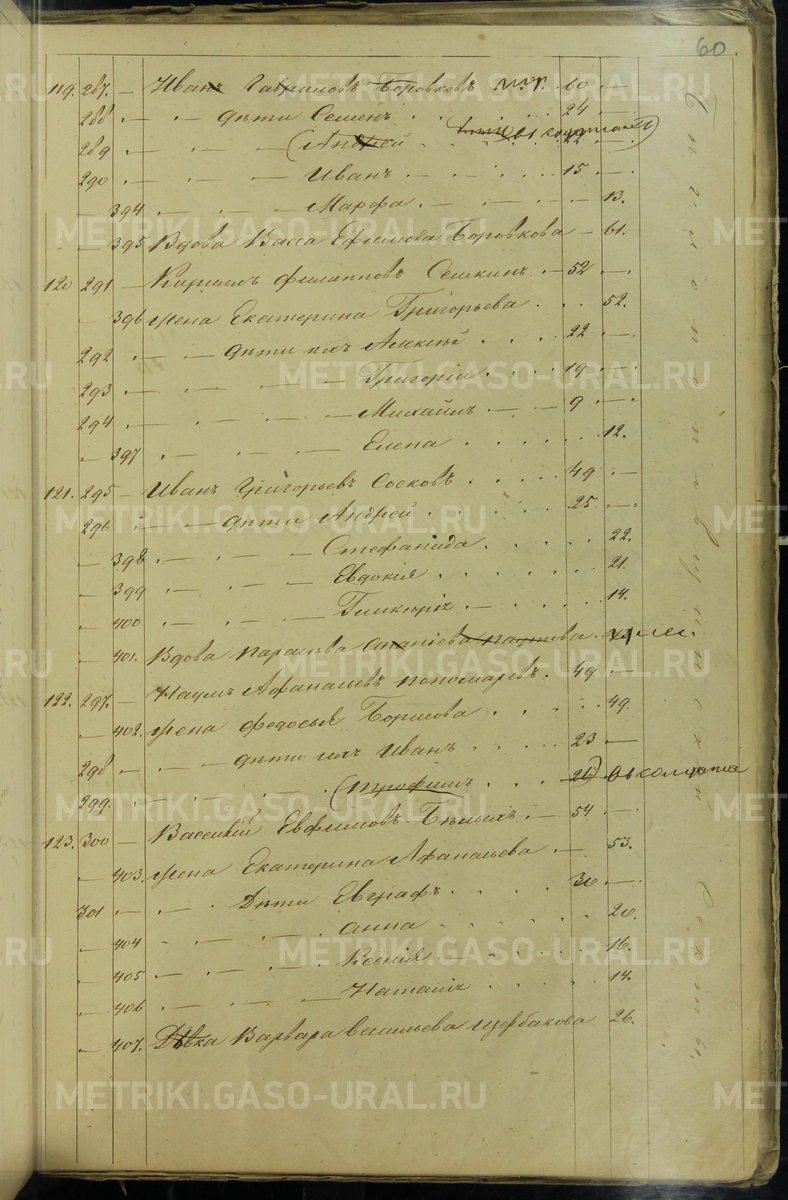 60.
119. 287. — Иванъ Гавриловъ Боровковъ 60 —
288 — — дѣти Семенъ 24 —
289 — — — (Андрей 22 —
290 — — — Иванъ 15 —
— 394 — — — Марфа — 13.
— 395 Вдова Васса Ефимова Боровкова — 61.
120 291 — Кирилъ Филипповъ Семкинъ — 52 —
— 396 жена Екатерина Григорьева 52.
292 — — дѣти ихъ Алексѣй 22 —
293 — — — Григорій 19 —
294 — — — Михаилъ — 9 —
— 397 — — — Елена 12.
121. 295 — Иванъ Григорьевъ Сосковъ 49 —
296 — — дѣти Андрей 25 —
— 398 — — — Стефанида 22.
— 399 — — — Евдокія 21.
— 400 — — — 14.
— 401. Вдова
122. 297. — Наумъ Афанасьевъ Пономаревъ 49 —
— 402. жена Федосья 49.
298 — — дѣти ихъ Иванъ 23 —
299. — — — (Трофимъ 20)
123. 300 — Василий Евфимовъ Бѣлыхъ — 54 —
— 403. жена Екатерина Афанасьева — 53.
301 — — Дѣти Евграфъ 30 —
— 404 — — — Анна 20.
— 405 — — — Ксенія 16.
— 406 — — — Наталія 14.
— 407. Дѣвка Варвара Васильева Щербакова 26.
METRIKI.GASO-URAL.RU